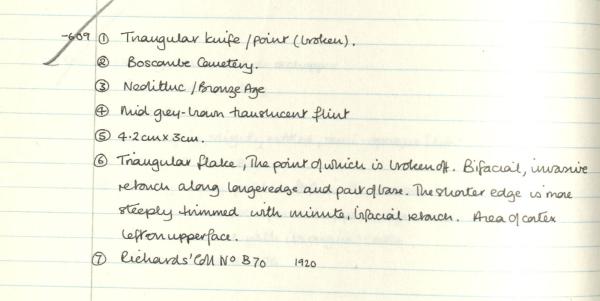 -609 ① Triangular knife / point (broken).
② Boscombe Cemetery.
③ Neolithic / Bronze Age
④ Mid grey-brown translucent flint
⑤ 4.2cm x 3cm.
⑥ Triangular flake, The point of which is broken off. Bifacial, invasive
retouch along longer edge and part of base. The shorter edge is more
steeply trimmed with minute, bifacial retouch. Area of cortex
left on upper face.
⑦ Richards' Coll No B70 1920